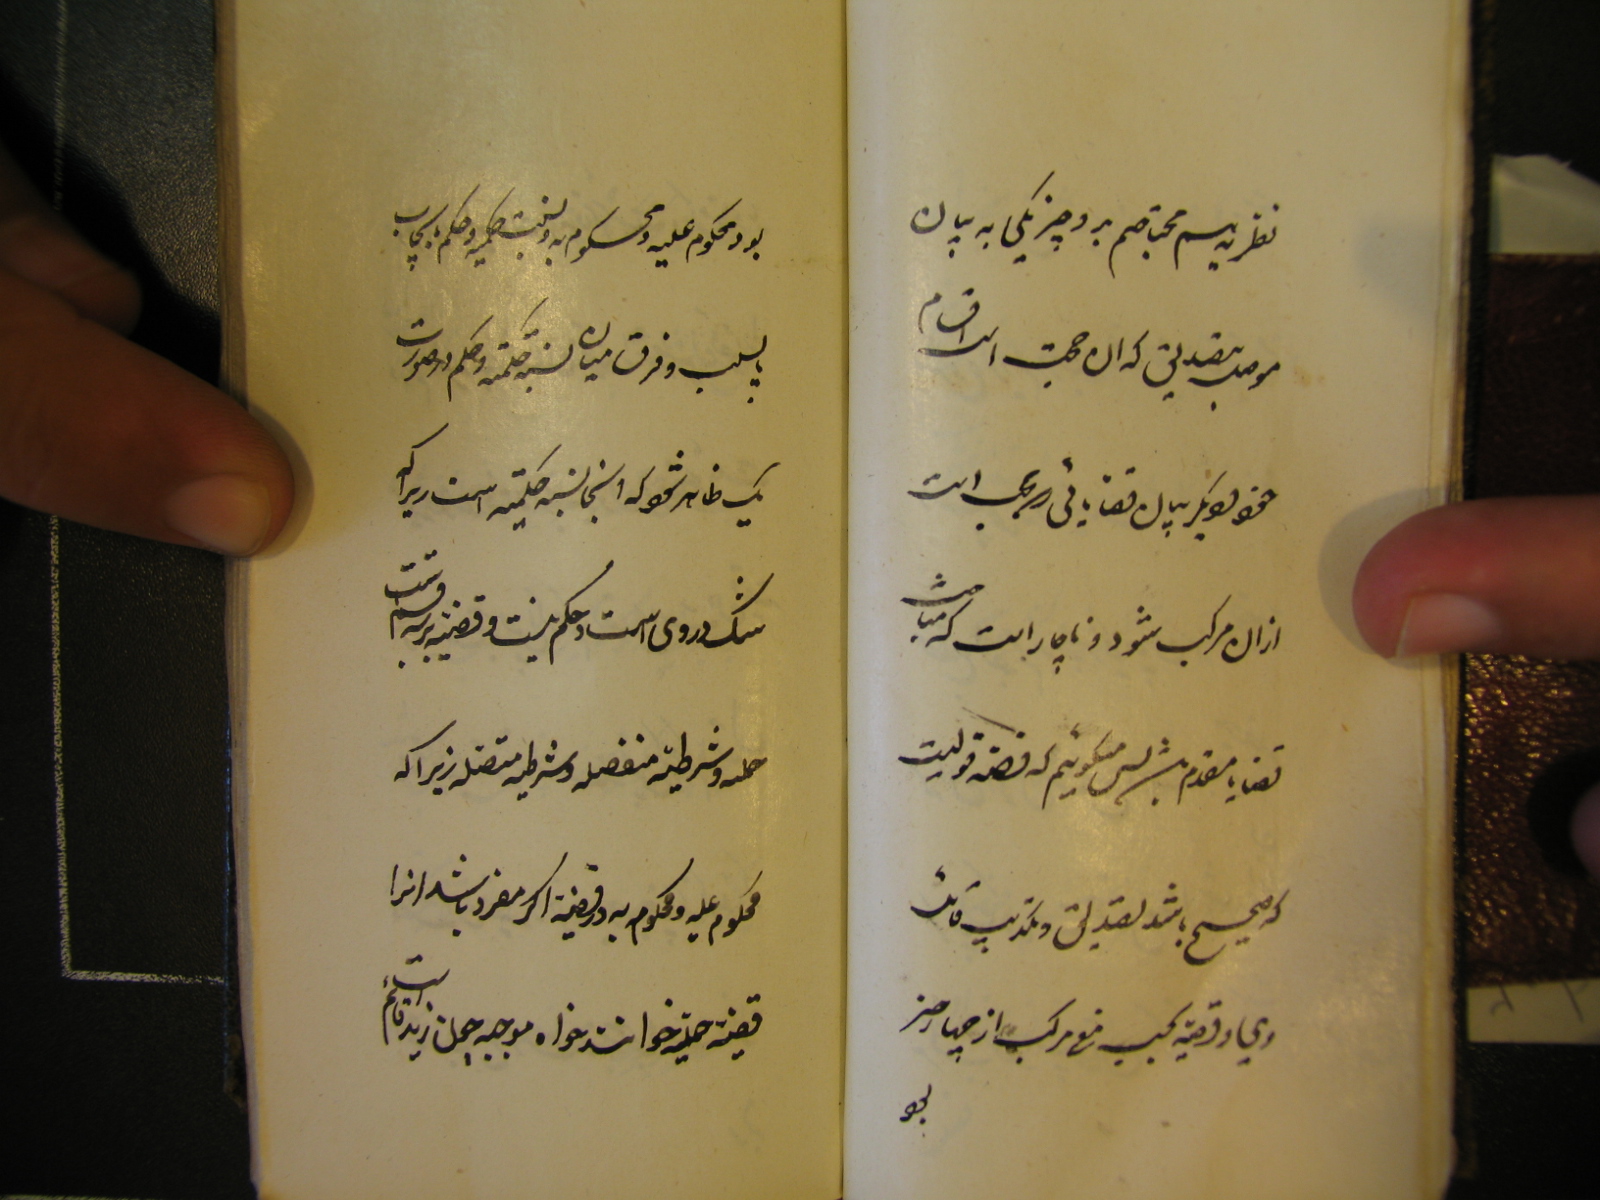 نظریه بسم محتاجم بر دو چیز یکی به بیان
موصل بتصدیق که ان حجت است اقسام
خود دیگر بیان قضایائی که حجت است
ازان مرکب شود و ناچار است که مباحث
قضایا مقدم باشد پس میگوئیم که قضیه قولیست
که صحیح باشد تصدیق و تکذیب قائل
وی او قضیه بحسب مع مرکب از چهار چیز
بود
بود محکوم علیه و محکوم به و نسبت حکمیه و حکم بایجاب
یا بسلب و فرق میان نسبه حکمیه و حکم در صورت
یک ظاهر شود که اینجا نسبه حکمیه است زیراکه
شک در وی است و حکم نیست و قضیه بر سه قسمست
حملیه و شرطیه منفصله و شرطیه متصله زیراکه
محکوم علیه و محکوم به در قضیه اگر مفرد باشد انرا
قضیه حملیه خوانند خواه موجبه چون زید قائم است